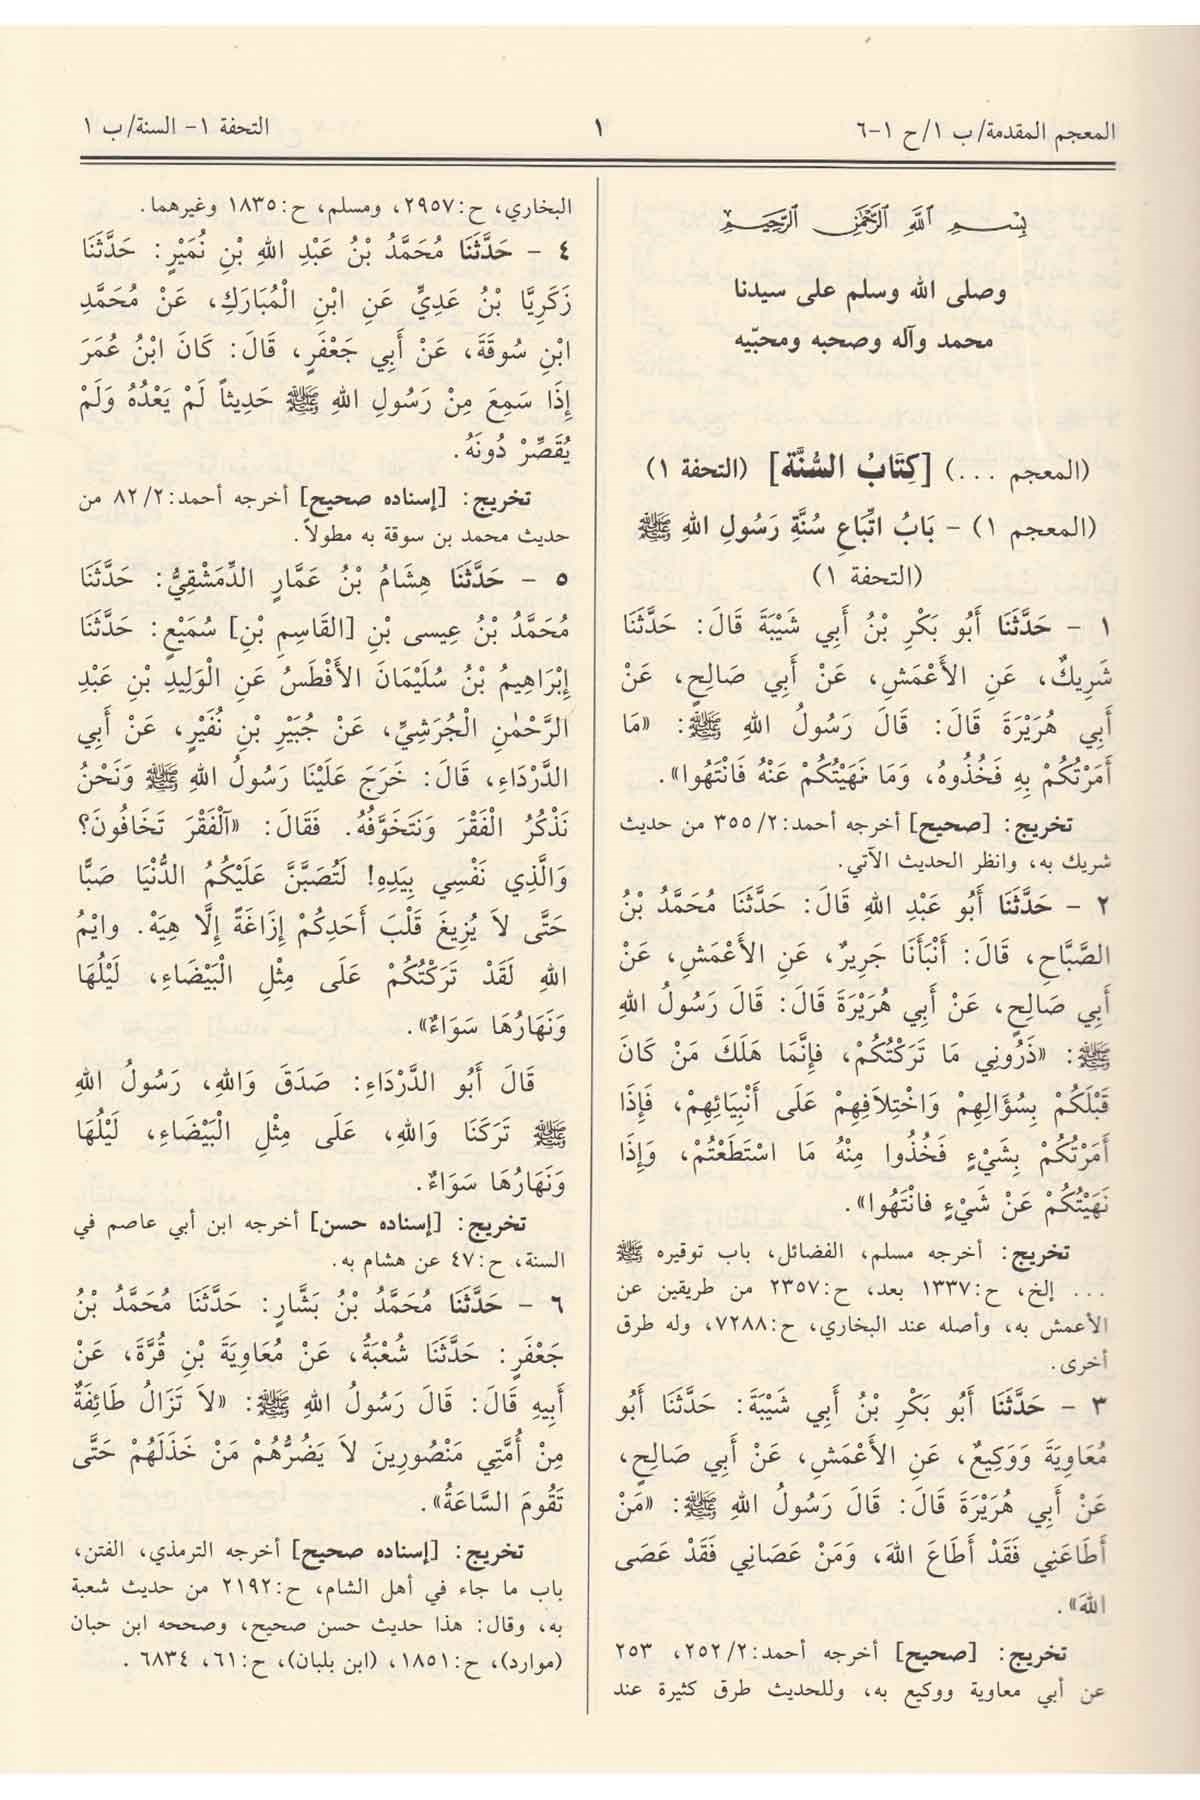 المعجم المقدمة/ ب ١/ ح ١-٦
١
التحفة ١- السنة/ ب ١
بِسْمِ اللَّهِ الرَّحْمَٰنِ الرَّحِيمِ
وصلى الله وسلم على سيدنا
محمد وآله وصحبه ومحبّيه
(المعجم ...) [كِتَابُ السُّنَّة] (التحفة ١)
(المعجم ١) - بَابُ اتِّبَاعِ سُنَّةِ رَسُولِ اللهِ ﷺ
(التحفة ١)
١ - حَدَّثَنَا أَبُو بَكْرِ بْنُ أَبِي شَيْبَةَ قَالَ: حَدَّثَنَا
شَرِيكٌ، عَنِ الأَعْمَشِ، عَنْ أَبِي صَالِحٍ، عَنْ
أَبِي هُرَيْرَةَ قَالَ: قَالَ رَسُولُ اللهِ ﷺ: «مَا
أَمَرْتُكُمْ بِهِ فَخُذُوهُ، وَمَا نَهَيْتُكُمْ عَنْهُ فَانْتَهُوا».
تخريج: [صحيح] أخرجه أحمد: ٢/ ٣٥٥ من حديث
شريك به، وانظر الحديث الآتي.
٢ - حَدَّثَنَا أَبُو عَبْدِ اللهِ قَالَ: حَدَّثَنَا مُحَمَّدُ بْنُ
الصَّبَّاحِ، قَالَ: أَنْبَأَنَا جَرِيرٌ، عَنِ الأَعْمَشِ، عَنْ
أَبِي صَالِحٍ، عَنْ أَبِي هُرَيْرَةَ قَالَ: قَالَ رَسُولُ اللهِ
ﷺ: «ذَرُونِي مَا تَرَكْتُكُمْ، فَإِنَّمَا هَلَكَ مَنْ كَانَ
قَبْلَكُمْ بِسُؤَالِهِمْ وَاخْتِلَافِهِمْ عَلَى أَنْبِيَائِهِمْ، فَإِذَا
أَمَرْتُكُمْ بِشَيْءٍ فَخُذُوا مِنْهُ مَا اسْتَطَعْتُمْ، وَإِذَا
نَهَيْتُكُمْ عَنْ شَيْءٍ فانْتَهُوا».
تخريج: أخرجه مسلم، الفضائل، باب توقيره ﷺ
... إلخ، ح: ١٣٣٧ بعد، ح: ٢٣٥٧ من طريقين عن
الأعمش به، وأصله عند البخاري، ح: ٧٢٨٨، وله طرق
أخرى.
٣ - حَدَّثَنَا أَبُو بَكْرِ بْنُ أَبِي شَيْبَةَ: حَدَّثَنَا أَبُو
مُعَاوِيَةَ وَوَكِيعٌ، عَنِ الأَعْمَشِ، عَنْ أَبِي صَالِحٍ،
عَنْ أَبِي هُرَيْرَةَ قَالَ: قَالَ رَسُولُ اللهِ ﷺ: «مَنْ
أَطَاعَنِي فَقَدْ أَطَاعَ اللهَ، وَمَنْ عَصَانِي فَقَدْ عَصَى
اللهَ».
تخريج: [صحيح] أخرجه أحمد: ٢/ ٢٥٢، ٢٥٣
عن أبي معاوية ووكيع به، وللحديث طرق كثيرة عند
البخاري، ح: ٢٩٥٧، ومسلم، ح: ١٨٣٥ وغيرهما.
٤ - حَدَّثَنَا مُحَمَّدُ بْنُ عَبْدِ اللهِ بْنِ نُمَيْرٍ: حَدَّثَنَا
زَكَرِيَّا بْنُ عَدِيٍّ عَنِ ابْنِ الْمُبَارَكِ، عَنْ مُحَمَّدِ
ابْنِ سُوقَةَ، عَنْ أَبِي جَعْفَرٍ، قَالَ: كَانَ ابْنُ عُمَرَ
إِذَا سَمِعَ مِنْ رَسُولِ اللهِ ﷺ حَدِيثاً لَمْ يَعْدُهُ وَلَمْ
يُقَصِّرْ دُونَهُ.
تخريج: [إسناده صحيح] أخرجه أحمد: ٢/ ٨٢ من
حديث محمد بن سوقة به مطولاً.
٥ - حَدَّثَنَا هِشَامُ بْنُ عَمَّارٍ الدِّمَشْقِيُّ: حَدَّثَنَا
مُحَمَّدُ بْنُ عِيسى بْنِ [القَاسِمِ بْنِ] سُمَيْعٍ: حَدَّثَنَا
إِبْرَاهِيمُ بْنُ سُلَيْمَانَ الأَفْطَسُ عَنِ الْوَلِيدِ بْنِ عَبْدِ
الرَّحْمٰنِ الْجُرَشِيِّ، عَنْ جُبَيْرِ بْنِ نُفَيْرٍ، عَنْ أَبِي
الدَّرْدَاءِ، قَالَ: خَرَجَ عَلَيْنَا رَسُولُ اللهِ ﷺ وَنَحْنُ
نَذْكُرُ الْفَقْرَ وَنَتَخَوَّفُهُ. فَقَالَ: «آلْفَقْرَ تَخَافُونَ؟
وَالَّذِي نَفْسِي بِيَدِهِ! لَتُصَبَّنَّ عَلَيْكُمُ الدُّنْيَا صَبًّا
حَتَّى لاَ يُزِيغَ قَلْبَ أَحَدِكُمْ إِزَاغَةً إِلَّا هِيَهْ. وايْمُ
اللهِ لَقَدْ تَرَكْتُكُمْ عَلَى مِثْلِ الْبَيْضَاءِ، لَيْلُهَا
وَنَهَارُهَا سَوَاءٌ».
قَالَ أَبُو الدَّرْدَاءِ: صَدَقَ وَاللهِ، رَسُولُ اللهِ
ﷺ تَرَكَنَا وَاللهِ، عَلَى مِثْلِ الْبَيْضَاءِ، لَيْلُهَا
وَنَهَارُهَا سَوَاءٌ.
تخريج: [إسناده حسن] أخرجه ابن أبي عاصم في
السنة، ح: ٤٧ عن هشام به.
٦ - حَدَّثَنَا مُحَمَّدُ بْنُ بَشَّارٍ: حَدَّثَنَا مُحَمَّدُ بْنُ
جَعْفَرٍ: حَدَّثَنَا شُعْبَةُ، عَنْ مُعَاوِيَةَ بْنِ قُرَّةَ، عَنْ
أَبِيهِ قَالَ: قَالَ رَسُولُ اللهِ ﷺ: «لاَ تَزَالُ طَائِفَةٌ
مِنْ أُمَّتِي مَنْصُورِينَ لاَ يَضُرُّهُمْ مَنْ خَذَلَهُمْ حَتَّى
تَقُومَ السَّاعَةُ».
تخريج: [إسناده صحيح] أخرجه الترمذي، الفتن،
باب ما جاء في أهل الشام، ح: ٢١٩٢ من حديث شعبة
به، وقال: هذا حديث حسن صحيح، وصححه ابن حبان
(موارد)، ح: ١٨٥١، (ابن بلبان)، ح: ٦١، ٦٨٣٤ .